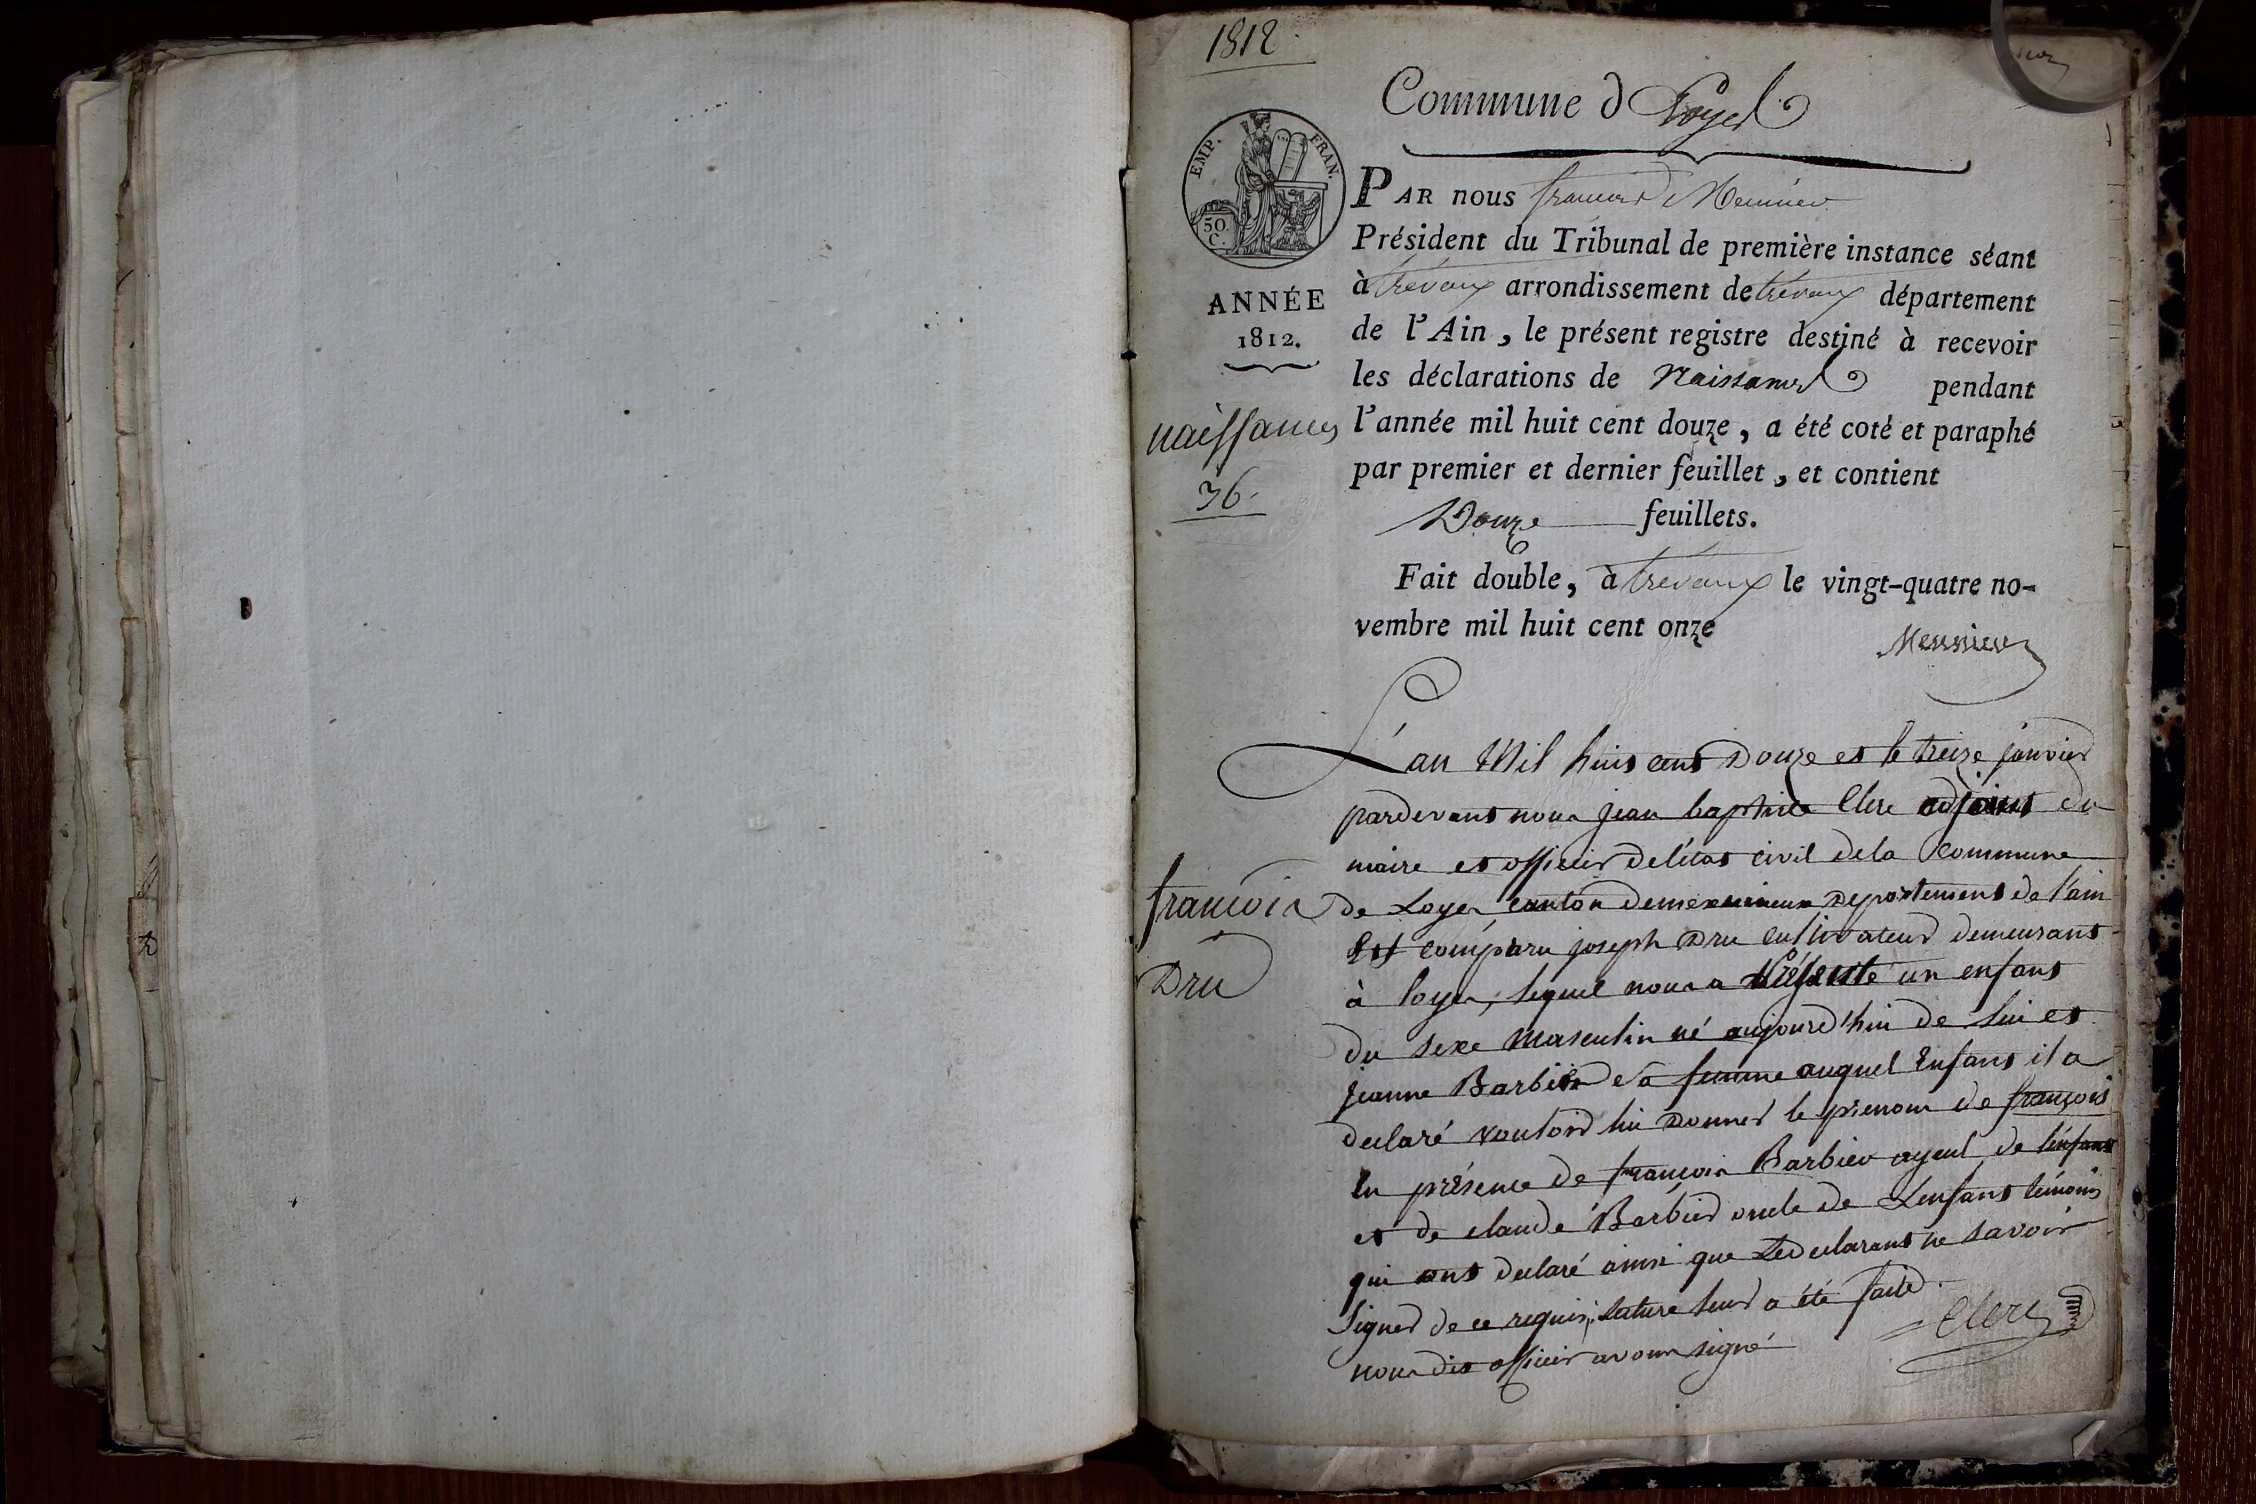 1812
Commune d Loyes
EMP. FRAN.
50
C.
PAR nous francois Meunier
Président du Tribunal de première instance séant
à trévoux arrondissement de trévoux département
ANNÉE
1812.
de l'Ain, le présent registre destiné à recevoir
les déclarations de Naissances pendant
naissances
36.
l'année mil huit cent douze, a été coté et paraphé
par premier et dernier feuillet, et contient
Douze feuillets.
Fait double, à trevoux le vingt-quatre no-
vembre mil huit cent onze
Meunier
L'an Mil huit cent Douze et le treize janvier
pardevant nous jean baptiste Clerc adjoint du
maire et officier de létat civil de la Commune
françois
Dru
de Loyes canton de meximieux Département de l'ain
Est comparu joseph Dru cultivateur demeurant
à loyes, lequel nous a présenté un enfant
du sexe Masculin né aujourd'hui de lui et
jeanne Barbier sa femme auquel Enfant il a
declaré vouloir lui Donner le prenom de françois
En présence de françois Barbier ayeul de lenfant
et de claude Barbier oncle de Lenfant témoins
qui ont declaré ainsi que Ledeclarant ne savoir
signer de ce requis, lecture leur a été faite.
nous dit officier avons signé
Clerc